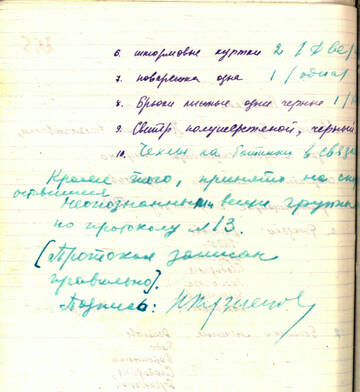 6. штормовые куртки 2 / две /
7. поварешка одна 1 / одна /
8. Брюки лыжные одни черные 1 /
9. Свитр полушерстяной, черный
10. Чехлы на ботинки в связ
Кроме того, принято на
оставшиеся
неопознанными вещи группы
по протоколу №13.
[Протокол записан
правильно].
Подпись: